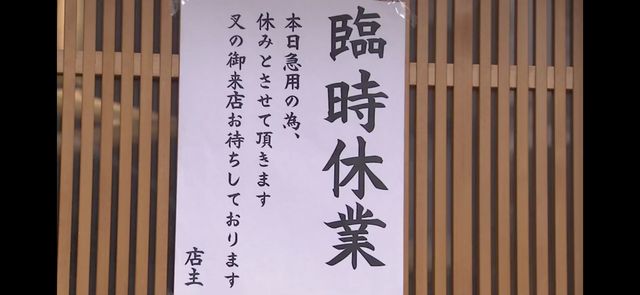 臨時休業
本日急用の為、
休みとさせて頂きます
又の御来店お待ちしております
店主